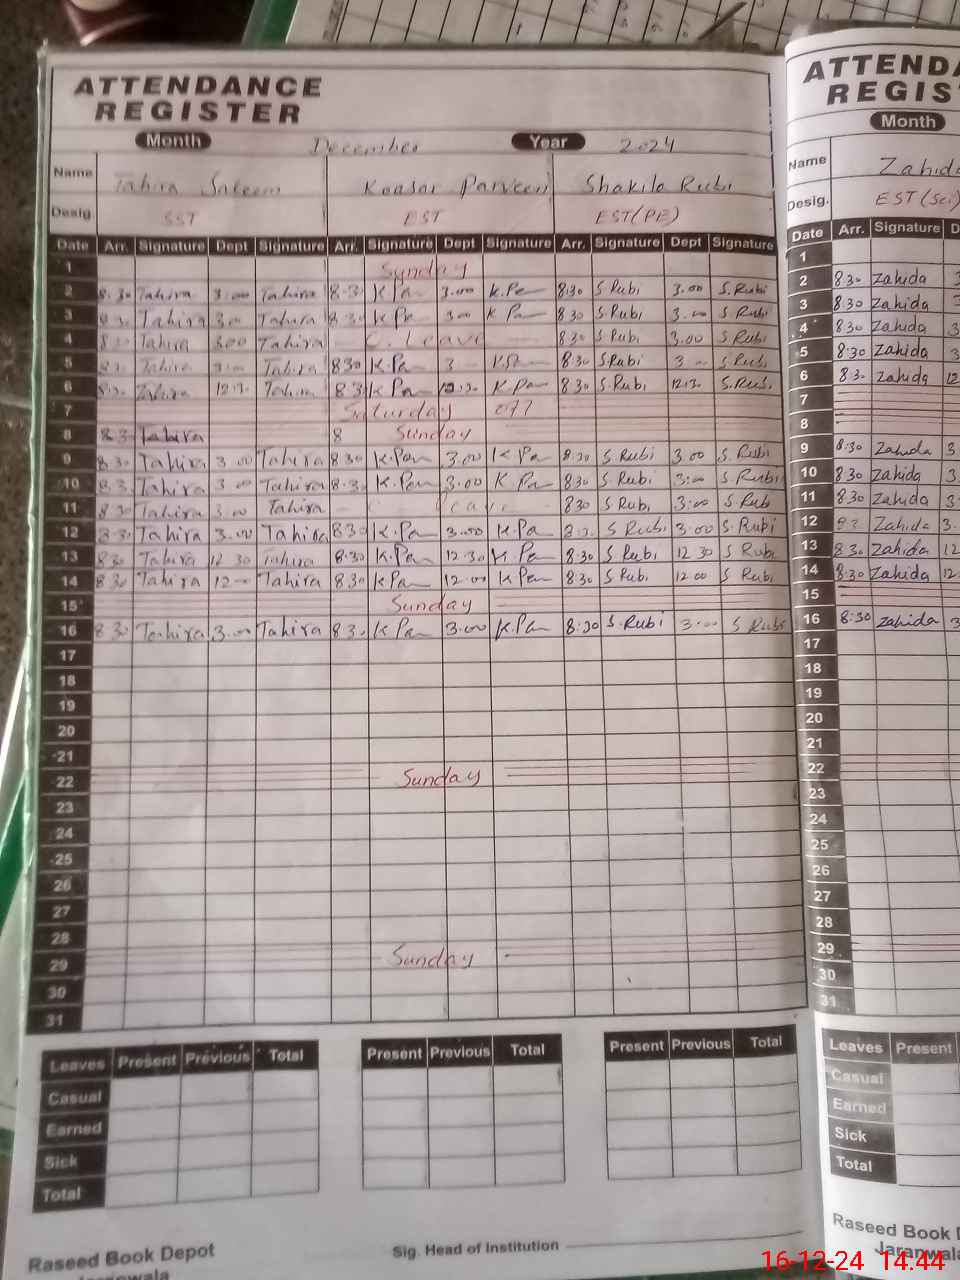 ATTENDANCE
REGISTER
Month December Year 2024
Name Tahira Saleem Kausar Parveen Shakila Rubi
Desig. SST EST EST(PE)
Date Arr. Signature Dept Signature Arr. Signature Dept Signature Arr. Signature Dept Signature
1 Sunday
2 8.30 Tahira 3.00 Tahira 8.3 K Pa 3.00 K.Pa 8.30 S.Rubi 3.00 S.Rubi
3 8.30 Tahira 3.00 Tahira 8.30 K Pa 3.00 K Pa 8.30 S.Rubi 3.00 S.Rubi
4 8.30 Tahira 3.00 Tahira C. Leave 8.30 S.Rubi 3.00 S.Rubi
5 8.30 Tahira 3.00 Tahira 8.30 K.Pa 3 8.30 S.Rubi 3 S.Rubi
6 8.30 Tahira 12.30 Tahira 8.3 K Pa 12.30 K Pa 8.30 S.Rubi 12.30 S.Rubi
7 Saturday off
8 8.3 Tahira 8 Sunday
9 8.30 Tahira 3.00 Tahira 8.30 K.Pa 3.00 K Pa 8.30 S Rubi 3.00 S.Rubi
10 8.3 Tahira 3.00 Tahira 8.3 K.Pa 3.00 K Pa 8.30 S Rubi 3.00 S.Rubi
11 8.30 Tahira 3.00 Tahira Leave 8.30 S Rubi 3.00 S Rub
12 8.30 Tahira 3.00 Tahira 8.30 K.Pa 3.00 K.Pa 8.30 S Rubi 3.00 S.Rubi
13 8.30 Tahira 12.30 Tahira 8.30 K.Pa 12.30 K.Pa 8.30 S Rubi 12.30 S Rubi
14 8.30 Tahira 12.00 Tahira 8.30 K Pa 12.00 K Pa 8.30 S Rubi 12.00 S Rubi
15 Sunday
16 8.30 Tahira 3.00 Tahira 8.30 K Pa 3.00 K.Pa 8.30 S.Rubi 3.00 S Rubi
17
18
19
20
21
22 Sunday
23
24
25
26
27
28
29 Sunday
30
31
Leaves Present Previous Total Present Previous Total Present Previous Total
Casual
Earned
Sick
Total
Raseed Book Depot Sig. Head of Institution
Jaranwala
ATTENDA
REGIS
Month
Name Zahida
Desig. EST(Sci)
Date Arr. Signature D
1
2 8.30 Zahida 3
3 8.30 Zahida 3
4 8.30 Zahida 3
5 8.30 Zahida 3
6 8.3 Zahida 12
7
8
9 8.30 Zahida 3
10 8.30 Zahida 3
11 8.30 Zahida 3
12 Zahida 3
13 8.30 Zahida 12
14 8.30 Zahida 12
15
16 8:30 Zahida 3
17
18
19
20
21
22
23
24
25
26
27
28
29
30
31
Leaves Present
Casual
Earned
Sick
Total
Raseed Book D
Jaranwala
16-12-24 14.44